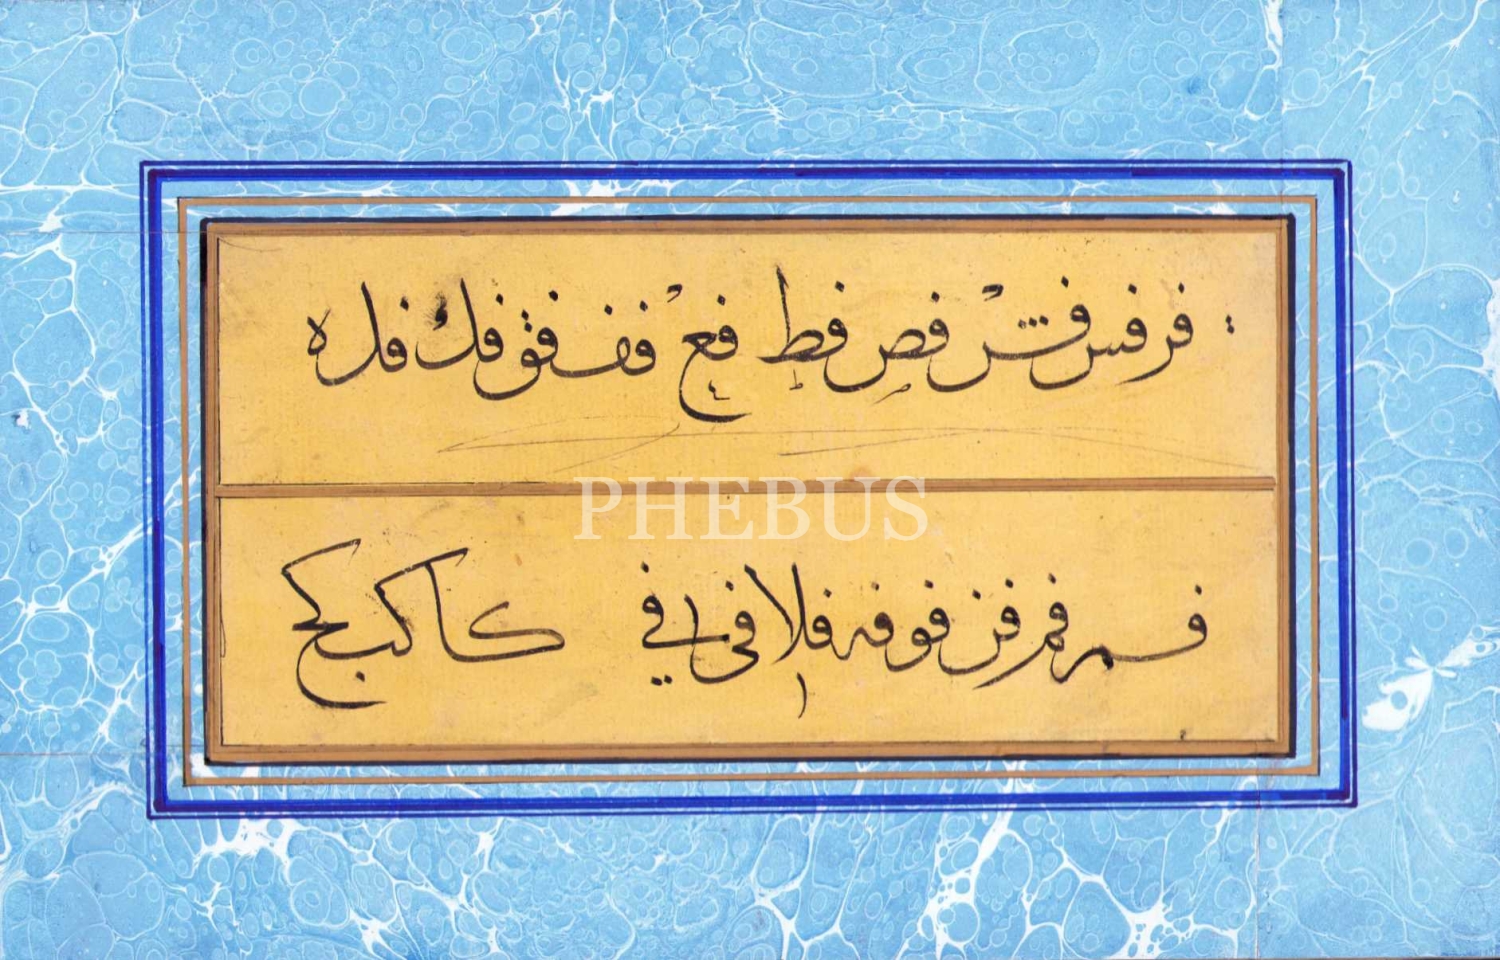 فر فس فش فص فط فع فف فق فك فل ه
PHEBUS
فم فم فن فو فه فلا في في كا كب كج